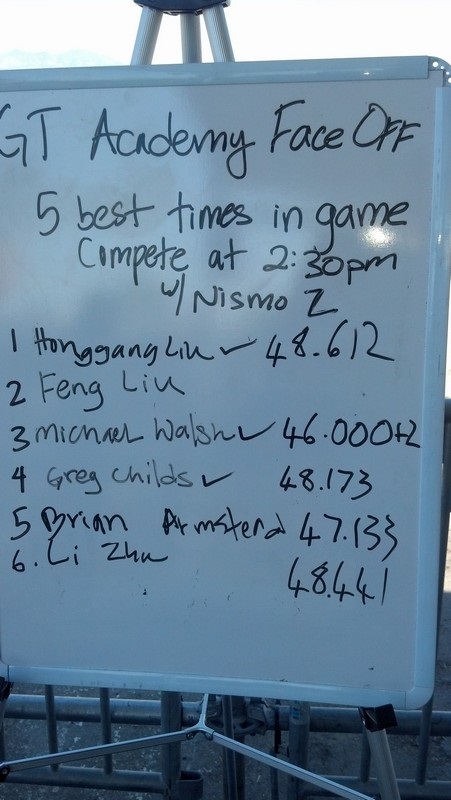 GT Academy Face Off
5 best times in game
Compete at 2:30pm
w/ Nismo Z
1 Honggang Liu ✓ 48.612
2 Feng Liu
3 Michael Walsh ✓ 46.000+2
4 Greg Childs ✓ 48.173
5 Brian Armsterd 47.133
6. Li Zhu
48.441